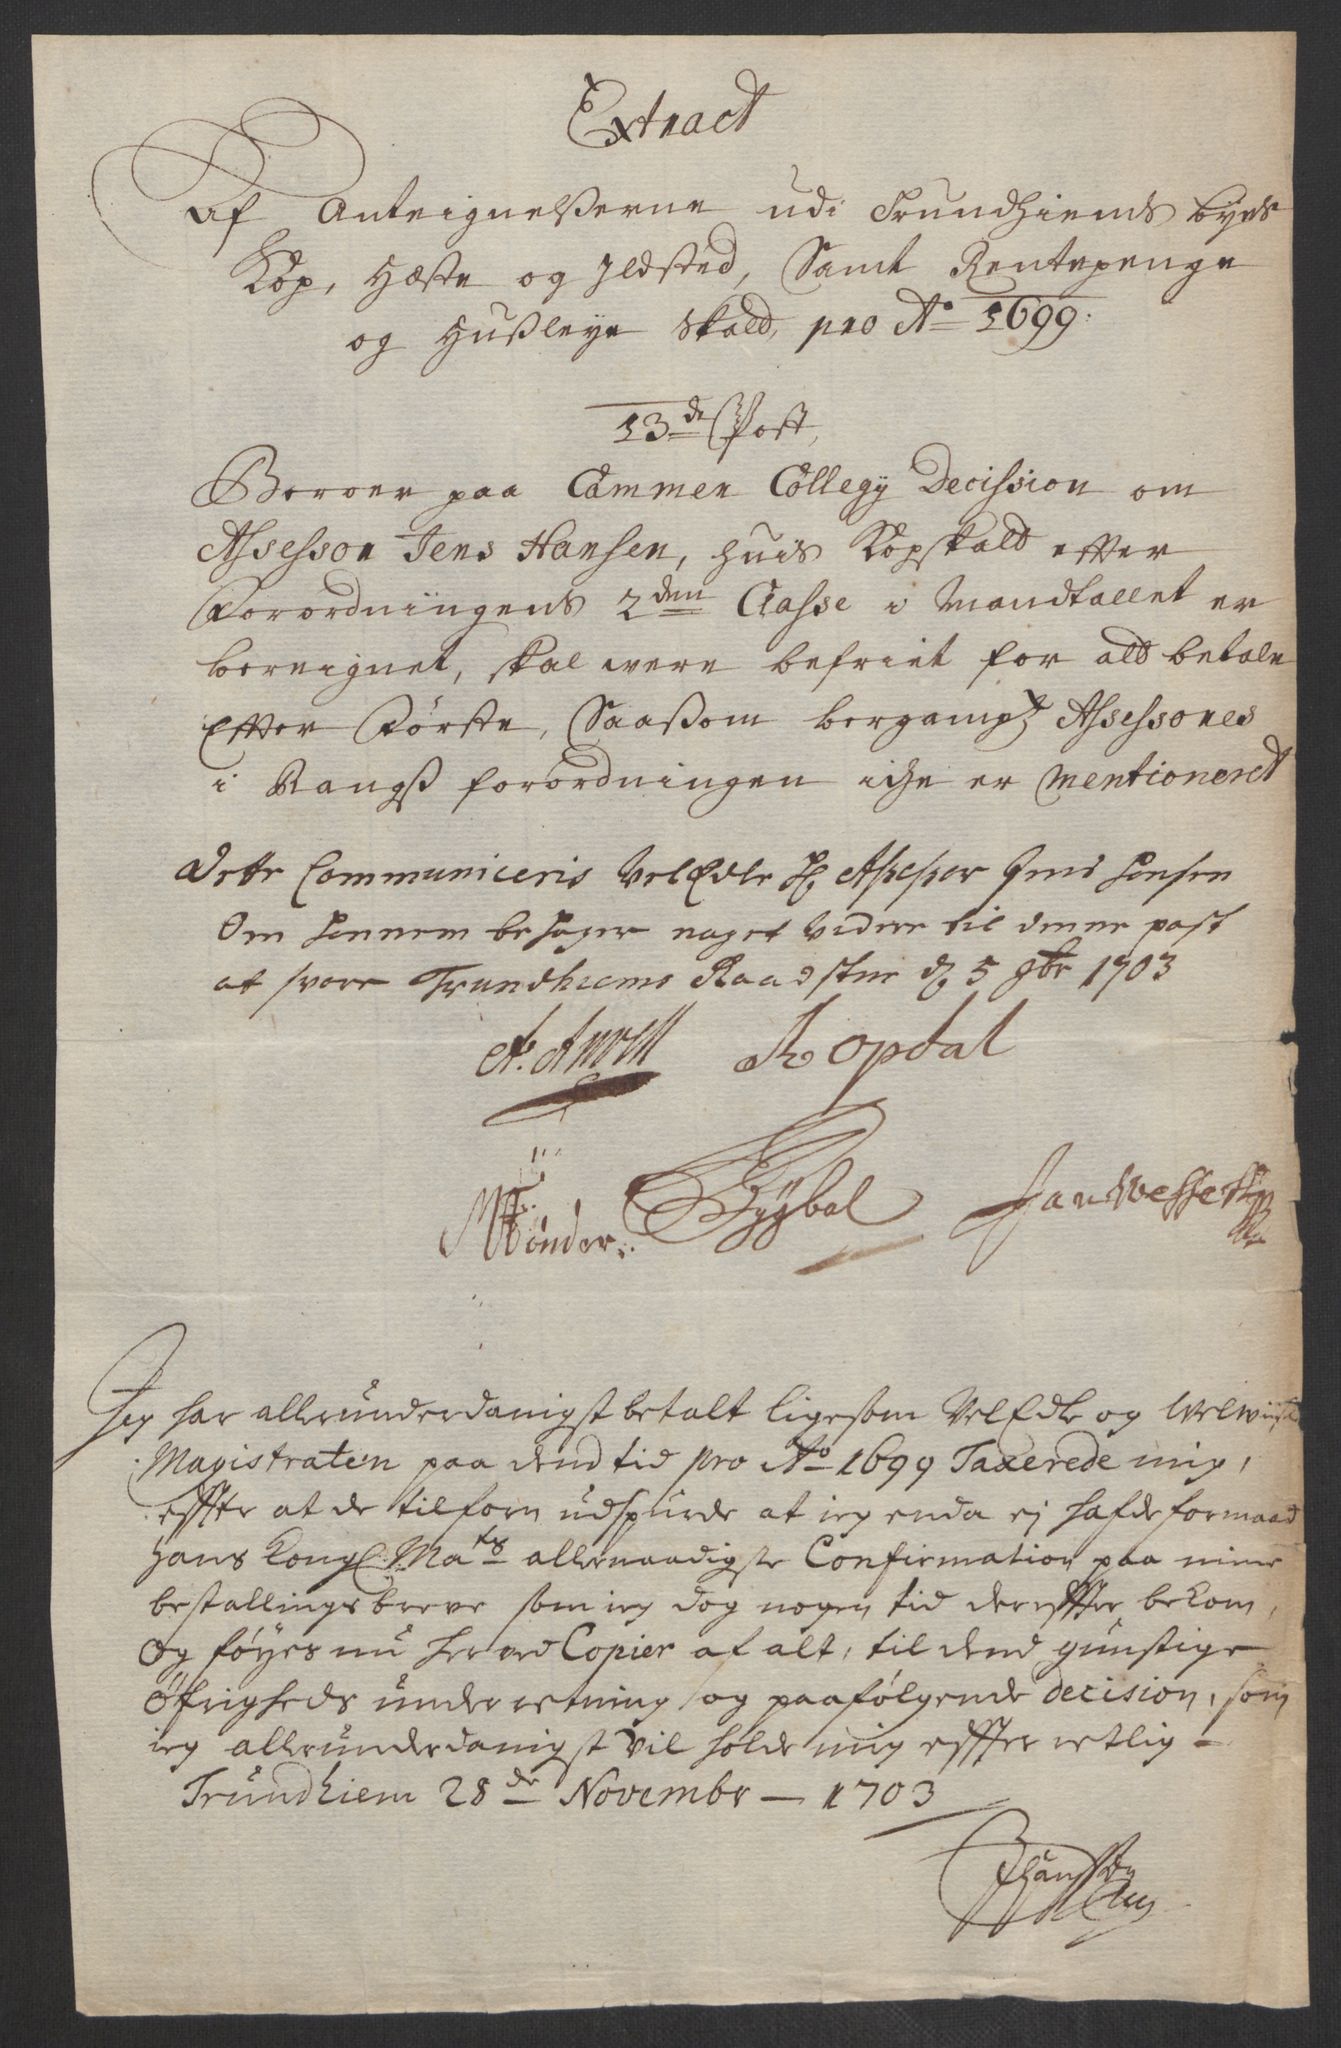 Extract
Af Anteignelßerne udi Trundhiems byes
Kop, Hæste og Ildsted, Samt Rentepenge
og Hußleye Skald, pro Ao 1699:
13de Post,
Beroer paa Cammer Collegij Decission om
Assessor Jens Hansen, huis Kopskald efter
Forordningens 2den Classe i Mandtallet er
bereignet, skal were befriet for ald betale
Efter Første, Saaßom bergamptz Assessores
i Rangß forordningen iche er mentioneret
Dette Communiceris VelEdle Hr Assessor Jens Hansen
Om hannem behager noget videre til denne post
at svare Trundhiems Raadstue d 5 9br 1703
A. Anvell R Opdal
Mønder Tyybal Jan Wessell
Jeg har allerunderdanigst betalt ligesom VelEdle og Velwiise
Magistraten paa dend tid pro Ao 1699 Taxerede mig,
effter at de tilforn udspurde at ieg enda ej hafde formaad
hans Kongl. Mats allernaadigste Confirmation paa mine
bestallingsbreve som ieg dog nogen tid dereffter bekom,
Og føyes nu herved Copier af alt, til dend gunstige
Øfrigheds underretning og paafølgende decision, som
ieg allerunderdanigst vil holde mig effterretlig
Trundhiem 28de Novembr 1703